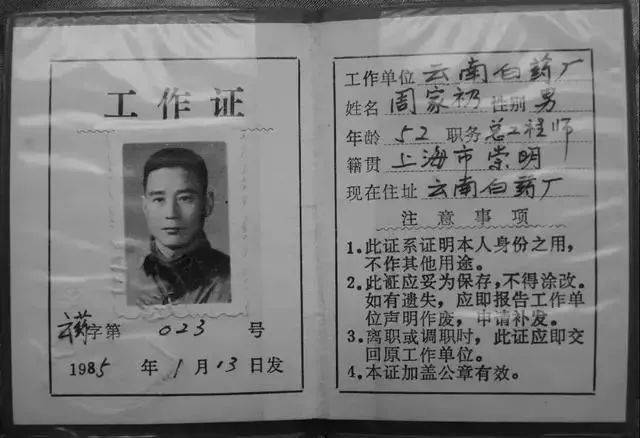 工作证
云药字第 023 号
1985年1月13日发
工作单位 云南白药厂
姓名 周家礽 性别 男
年龄 52 职务 总工程师
籍贯 上海市崇明
现在住址 云南白药厂
注意事项
1.此证系证明本人身份之用,
不作其他用途。
2.此证应妥为保存,不得涂改。
如有遗失,应即报告工作单
位声明作废,申请补发。
3.离职或调职时,此证应即交
回原工作单位。
4.本证加盖公章有效。